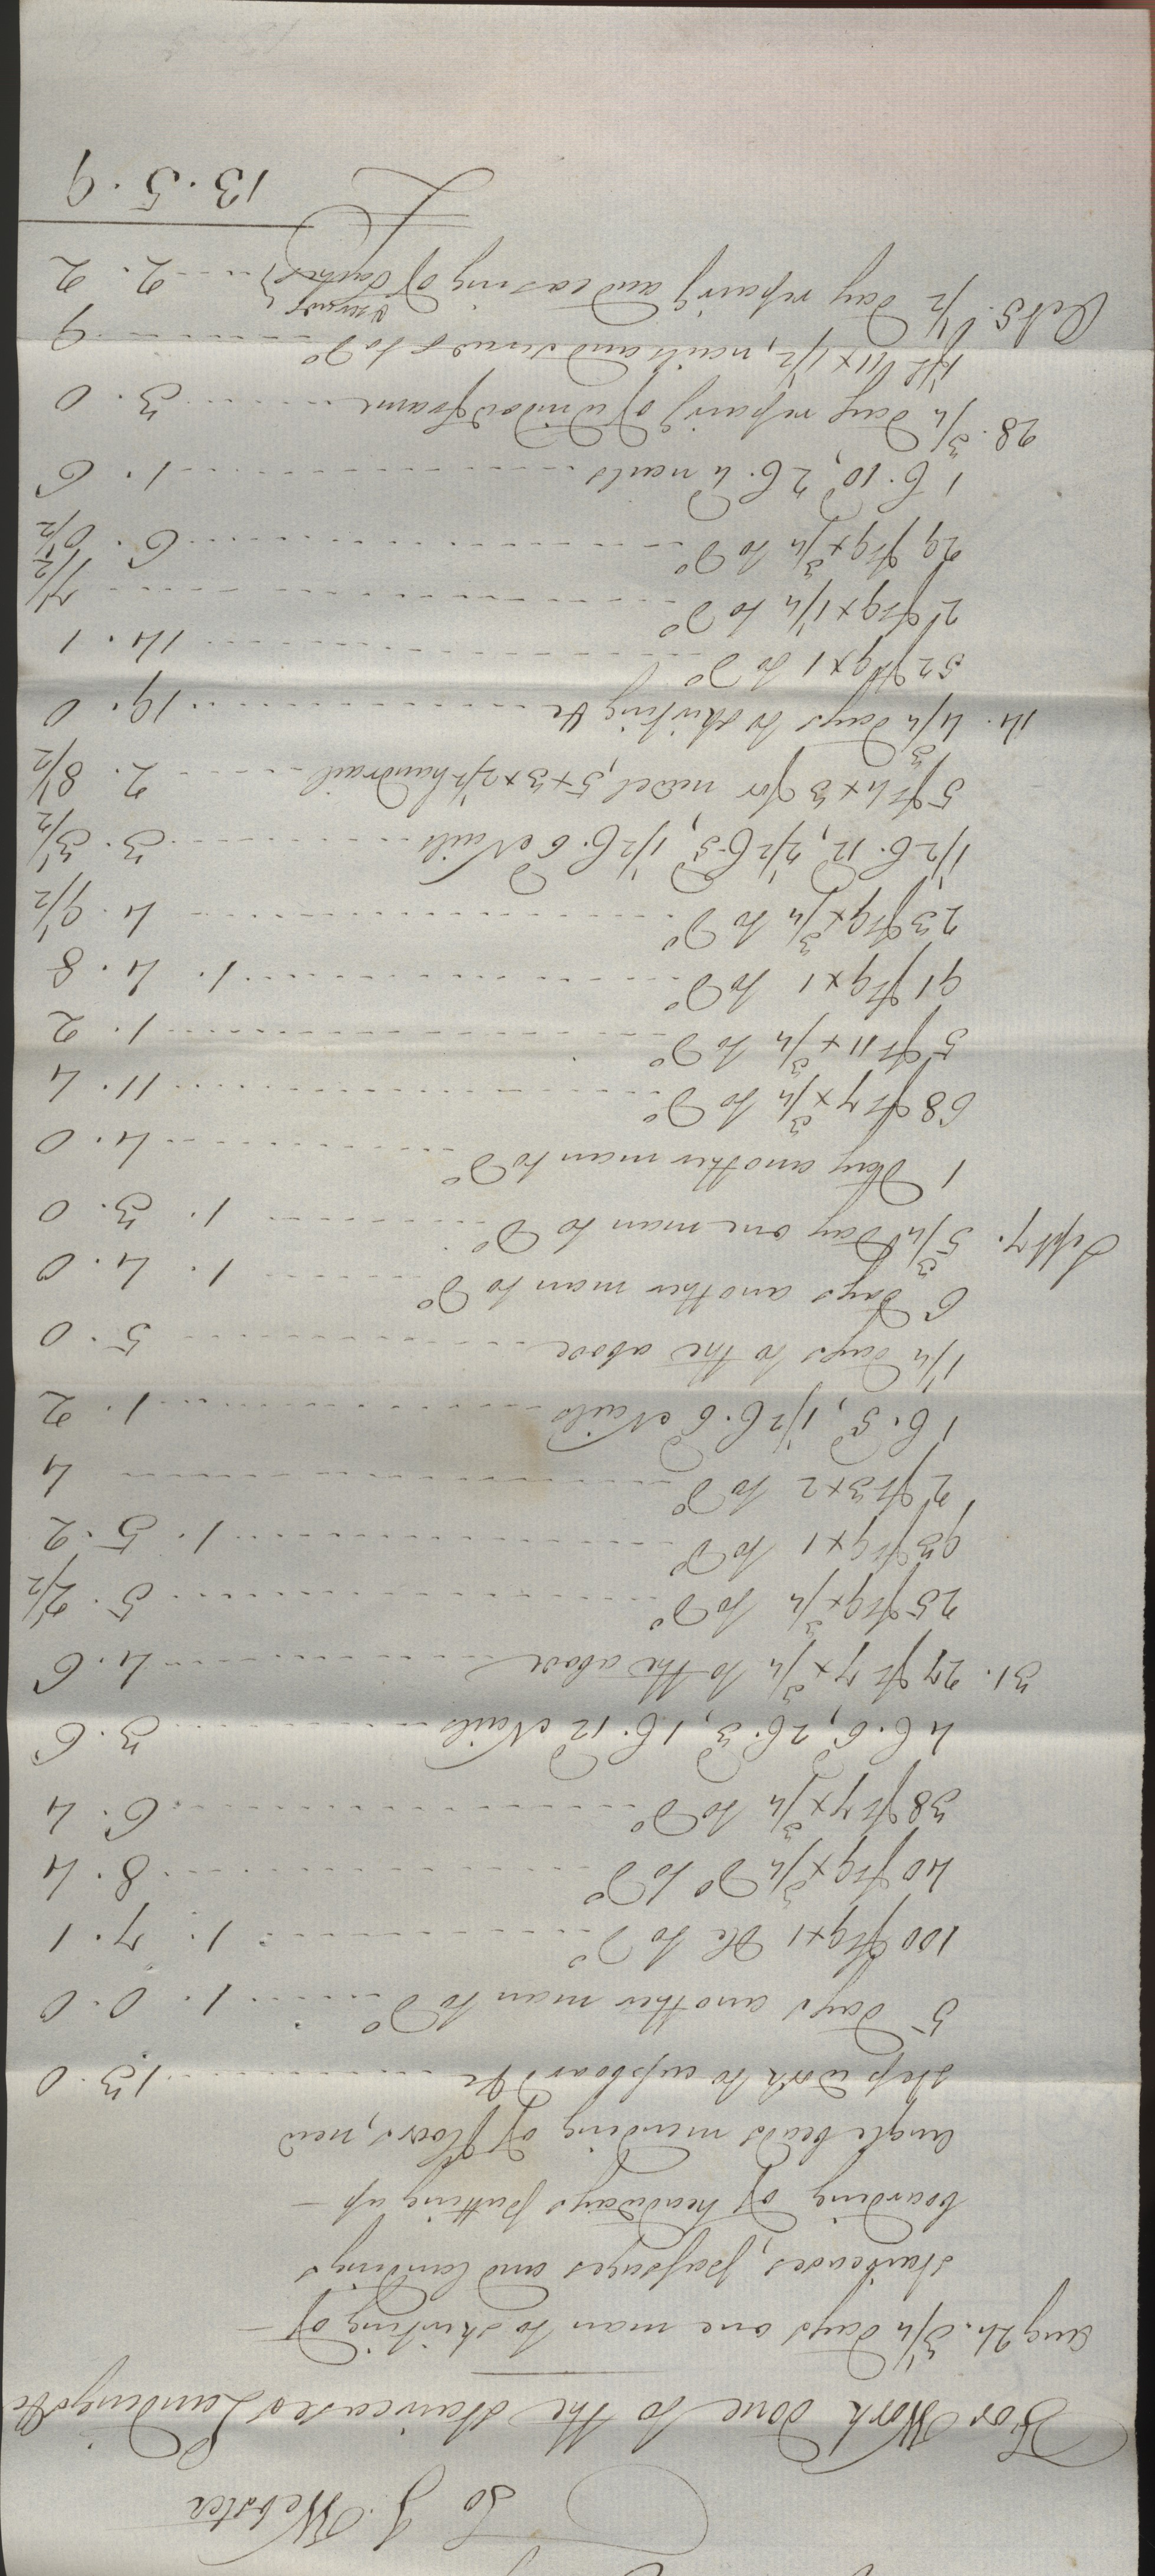 To J. Webster
For Work done to the Staircases Landings &c
Aug 24. 3 1/4 days one man to skirting of —
staircases, passages and landings
boarding of headways putting up —
angle beads mending of floors, new
step work to cupboard &c 13. 0
5 days another man to Do 1. 0. 0
100 ft 9 x 1 &c to Do 1. 7. 1
40 ft 9 x 3/4 Do to Do 8. 4
38 ft 7 x 3/4 to Do 6. 4
4 C. 6d, 2 C. 3d, 1 C. 12d Nails 3. 6
31. 27 ft 7 x 3/4 to the above 4. 6
25 ft 9 x 3/4 to Do 5. 2 1/2
93 ft 9 x 1 to Do 1. 5. 2
2 ft 3 x 2 to Do 4
1 C. 5d, 1 1/2 C. 6d Nails 1. 2
1 1/4 days to the above 5. 0
6 days another man to Do 1. 4. 0
Sept 7. 5 3/4 Day one man to Do 1. 3. 0
1 Day another man to Do 4. 0
68 ft 7 x 3/4 to Do 11. 4
5 ft 11 x 3/4 to Do 1. 2
91 ft 9 x 1 to Do 1. 4. 8
23 ft 9 x 3/4 to Do 4. 9 1/2
1 1/2 C. 12d, 2 1/2 C. 5d, 1 1/2 C. 6d Nails 3. 3 1/2
5 ft 4 x 3 for newel, 5 x 3 x 2 1/2 handrail 2. 8 1/2
14. 4 3/4 days to skirting &c 19. 0
52 ft 9 x 1 to Do 14. 1
2 ft 9 x 1 1/4 to Do 7 1/2
29 ft 9 x 3/4 to Do 6. 0 1/2
1 C. 10d, 2 C. 4 nails 1. 6
28. 3/4 day repairg of window frame 3. 0
1 ft 11 x 1 1/2, nails and screws to Do 9
Oct 5. 1/2 day repairg and easing of sashes & screws 2. 2
£ 13. 5. 9